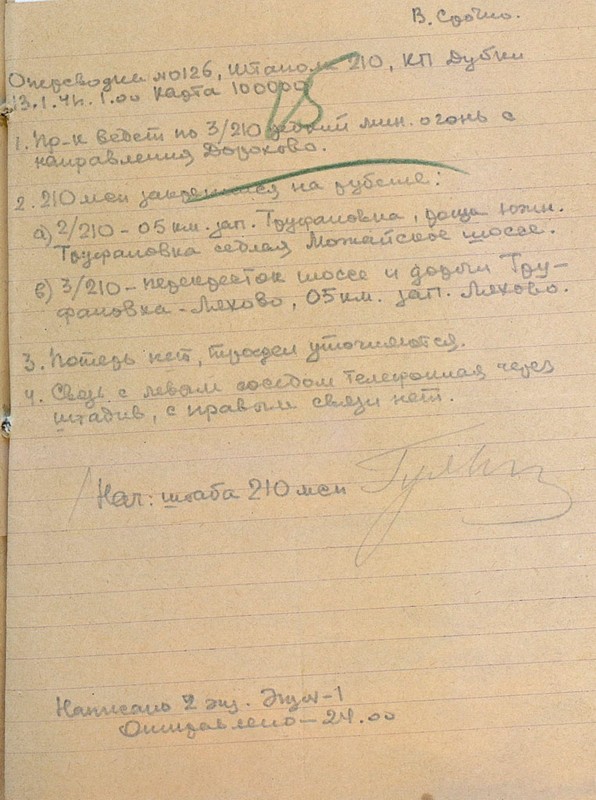 В. Срочно.
Оперсводка №0126, штаполк 210, КП Дубки
13.1.42г. 1.00 карта 100000
15
1. Пр-к ведет по 3/210 редкий мин. огонь с
направления Дорохово.
2. 210 мсп закрепился на рубеже:
а) 2/210 – 05 км. зап. Труфановка, роща южн.
Труфановка седлая Можайское шоссе.
в) 3/210 – перекресток шоссе и дороги Тру-
фановка – Ляхово, 05 км. зап. Ляхово.
3. Потерь нет, трофеи уточняются.
4. Связь с левым соседом телефонная через
штадив, с правым связи нет.
Нач: штаба 210 мсп
Написано 2 экз. Экз №-1
Отправлено – 24.00